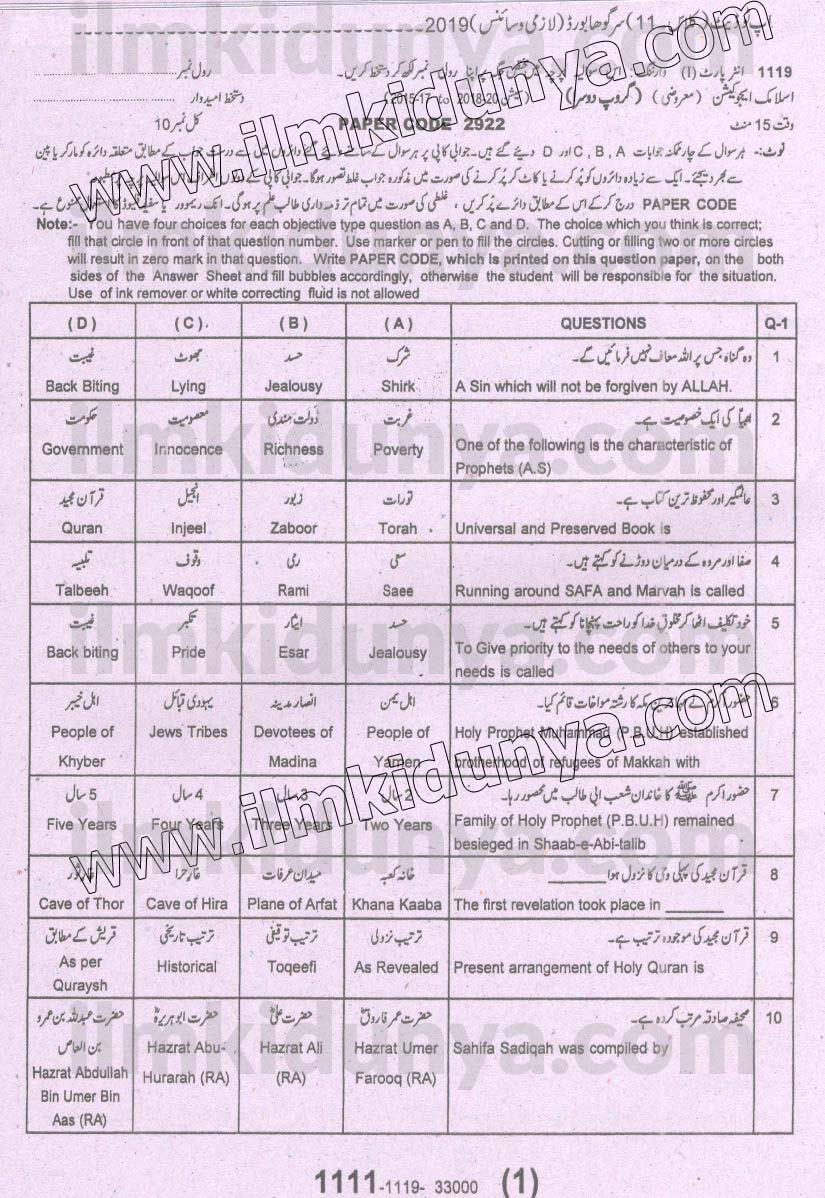 (لازمی و سائنس) 2019
1119 انٹر پارٹ (I) رول نمبر لکھ کر دستخط کریں۔ رول نمبر
اسلامک ایجوکیشن (معروضی) (گروپ دوسرا) (سیشن 2015-17 to 2018-20) دستخط امیدوار
وقت 15 منٹ PAPER CODE 2922 کل نمبر 10
نوٹ:- ہر سوال کے چار ممکنہ جوابات A ,B ,C اور D دیئے گئے ہیں۔ جوابی کاپی پر ہر سوال کے سامنے دیئے گئے دائروں میں سے درست جواب کے مطابق متعلقہ دائرہ کو مارکر یا پین
سے بھر دیجئے۔ ایک سے زیادہ دائروں کو پُر کرنے یا کاٹ کر پُر کرنے کی صورت میں مذکورہ جواب غلط تصور ہوگا۔ جوابی کاپی کے
PAPER CODE درج کر کے اس کے مطابق دائرے پُر کریں، غلطی کی صورت میں تمام تر ذمہ داری طالب علم پر ہوگی۔ انک ریموور یا سفید فلیوڈ کا استعمال ممنوع ہے۔
Note:- You have four choices for each objective type question as A, B, C and D. The choice which you think is correct;
fill that circle in front of that question number. Use marker or pen to fill the circles. Cutting or filling two or more circles
will result in zero mark in that question. Write PAPER CODE, which is printed on this question paper, on the both
sides of the Answer Sheet and fill bubbles accordingly, otherwise the student will be responsible for the situation.
Use of ink remover or white correcting fluid is not allowed
( D ) ( C ). ( B ) ( A ) QUESTIONS Q-1
غیبت جھوٹ حسد شرک وہ گناہ جس پر اللہ معاف نہیں فرمائیں گے۔ 1
Back Biting Lying Jealousy Shirk A Sin which will not be forgiven by ALLAH.
حکومت معصومیت دولت مندی غربت انبیاؑ کی ایک خصوصیت ہے۔ 2
Government Innocence Richness Poverty One of the following is the characteristic of
Prophets (A.S)
قرآن مجید انجیل زبور تورات عالمگیر اور محفوظ ترین کتاب ہے۔ 3
Quran Injeel Zaboor Torah Universal and Preserved Book is
تلبیہ وقوف رمی سعی صفا اور مروہ کے درمیان دوڑنے کو کہتے ہیں۔ 4
Talbeeh Waqoof Rami Saee Running around SAFA and Marvah is called
غیبت تکبر ایثار حسد خود تکلیف اٹھا کر مخلوق خدا کو راحت پہنچانا کو کہتے ہیں۔ 5
Back biting Pride Esar Jealousy To Give priority to the needs of others to your
needs is called
اہل خیبر یہودی قبائل انصار مدینہ اہل یمن حضور اکرمؐ نے مہاجرین مکہ کا رشتہ مواخات قائم کیا۔ 6
People of Khyber Jews Tribes Devotees of Madina People of Yamen Holy Prophet Muhammad (P.B.U.H) established
brotherhood of refugees of Makkah with
5 سال 4 سال 3 سال 2 سال حضور اکرم ﷺ کا خاندان شعب ابی طالب میں محصور رہا۔ 7
Five Years Four Years Three Years Two Years Family of Holy Prophet (P.B.U.H) remained
besieged in Shaab-e-Abi-talib
غار ثور غار حرا میدان عرفات خانہ کعبہ قرآن مجید کی پہلی وحی کا نزول ہوا ______ 8
Cave of Thor Cave of Hira Plane of Arfat Khana Kaaba The first revelation took place in ______
قریش کے مطابق ترتیب تاریخی ترتیب توقیفی ترتیب نزولی قرآن مجید کی موجودہ ترتیب ہے۔ 9
As per Quraysh Historical Toqeefi As Revealed Present arrangement of Holy Quran is
حضرت عبداللہ بن عمرو بن العاص حضرت ابو ہریرہؓ حضرت علیؓ حضرت عمر فاروقؓ صحیفہ صادقہ مرتب کردہ ہے۔ 10
Hazrat Abdullah Bin Umer Bin Aas (RA) Hazrat Abu-Hurarah (RA) Hazrat Ali (RA) Hazrat Umer Farooq (RA) Sahifa Sadiqah was compiled by
1111-1119- 33000 (1)
www.ilmkidunya.com
www.ilmkidunya.com
ilmkidunya.com
ilmkidunya.com
ilmkidunya.com
ilmkidunya.com
ilmkidunya.com